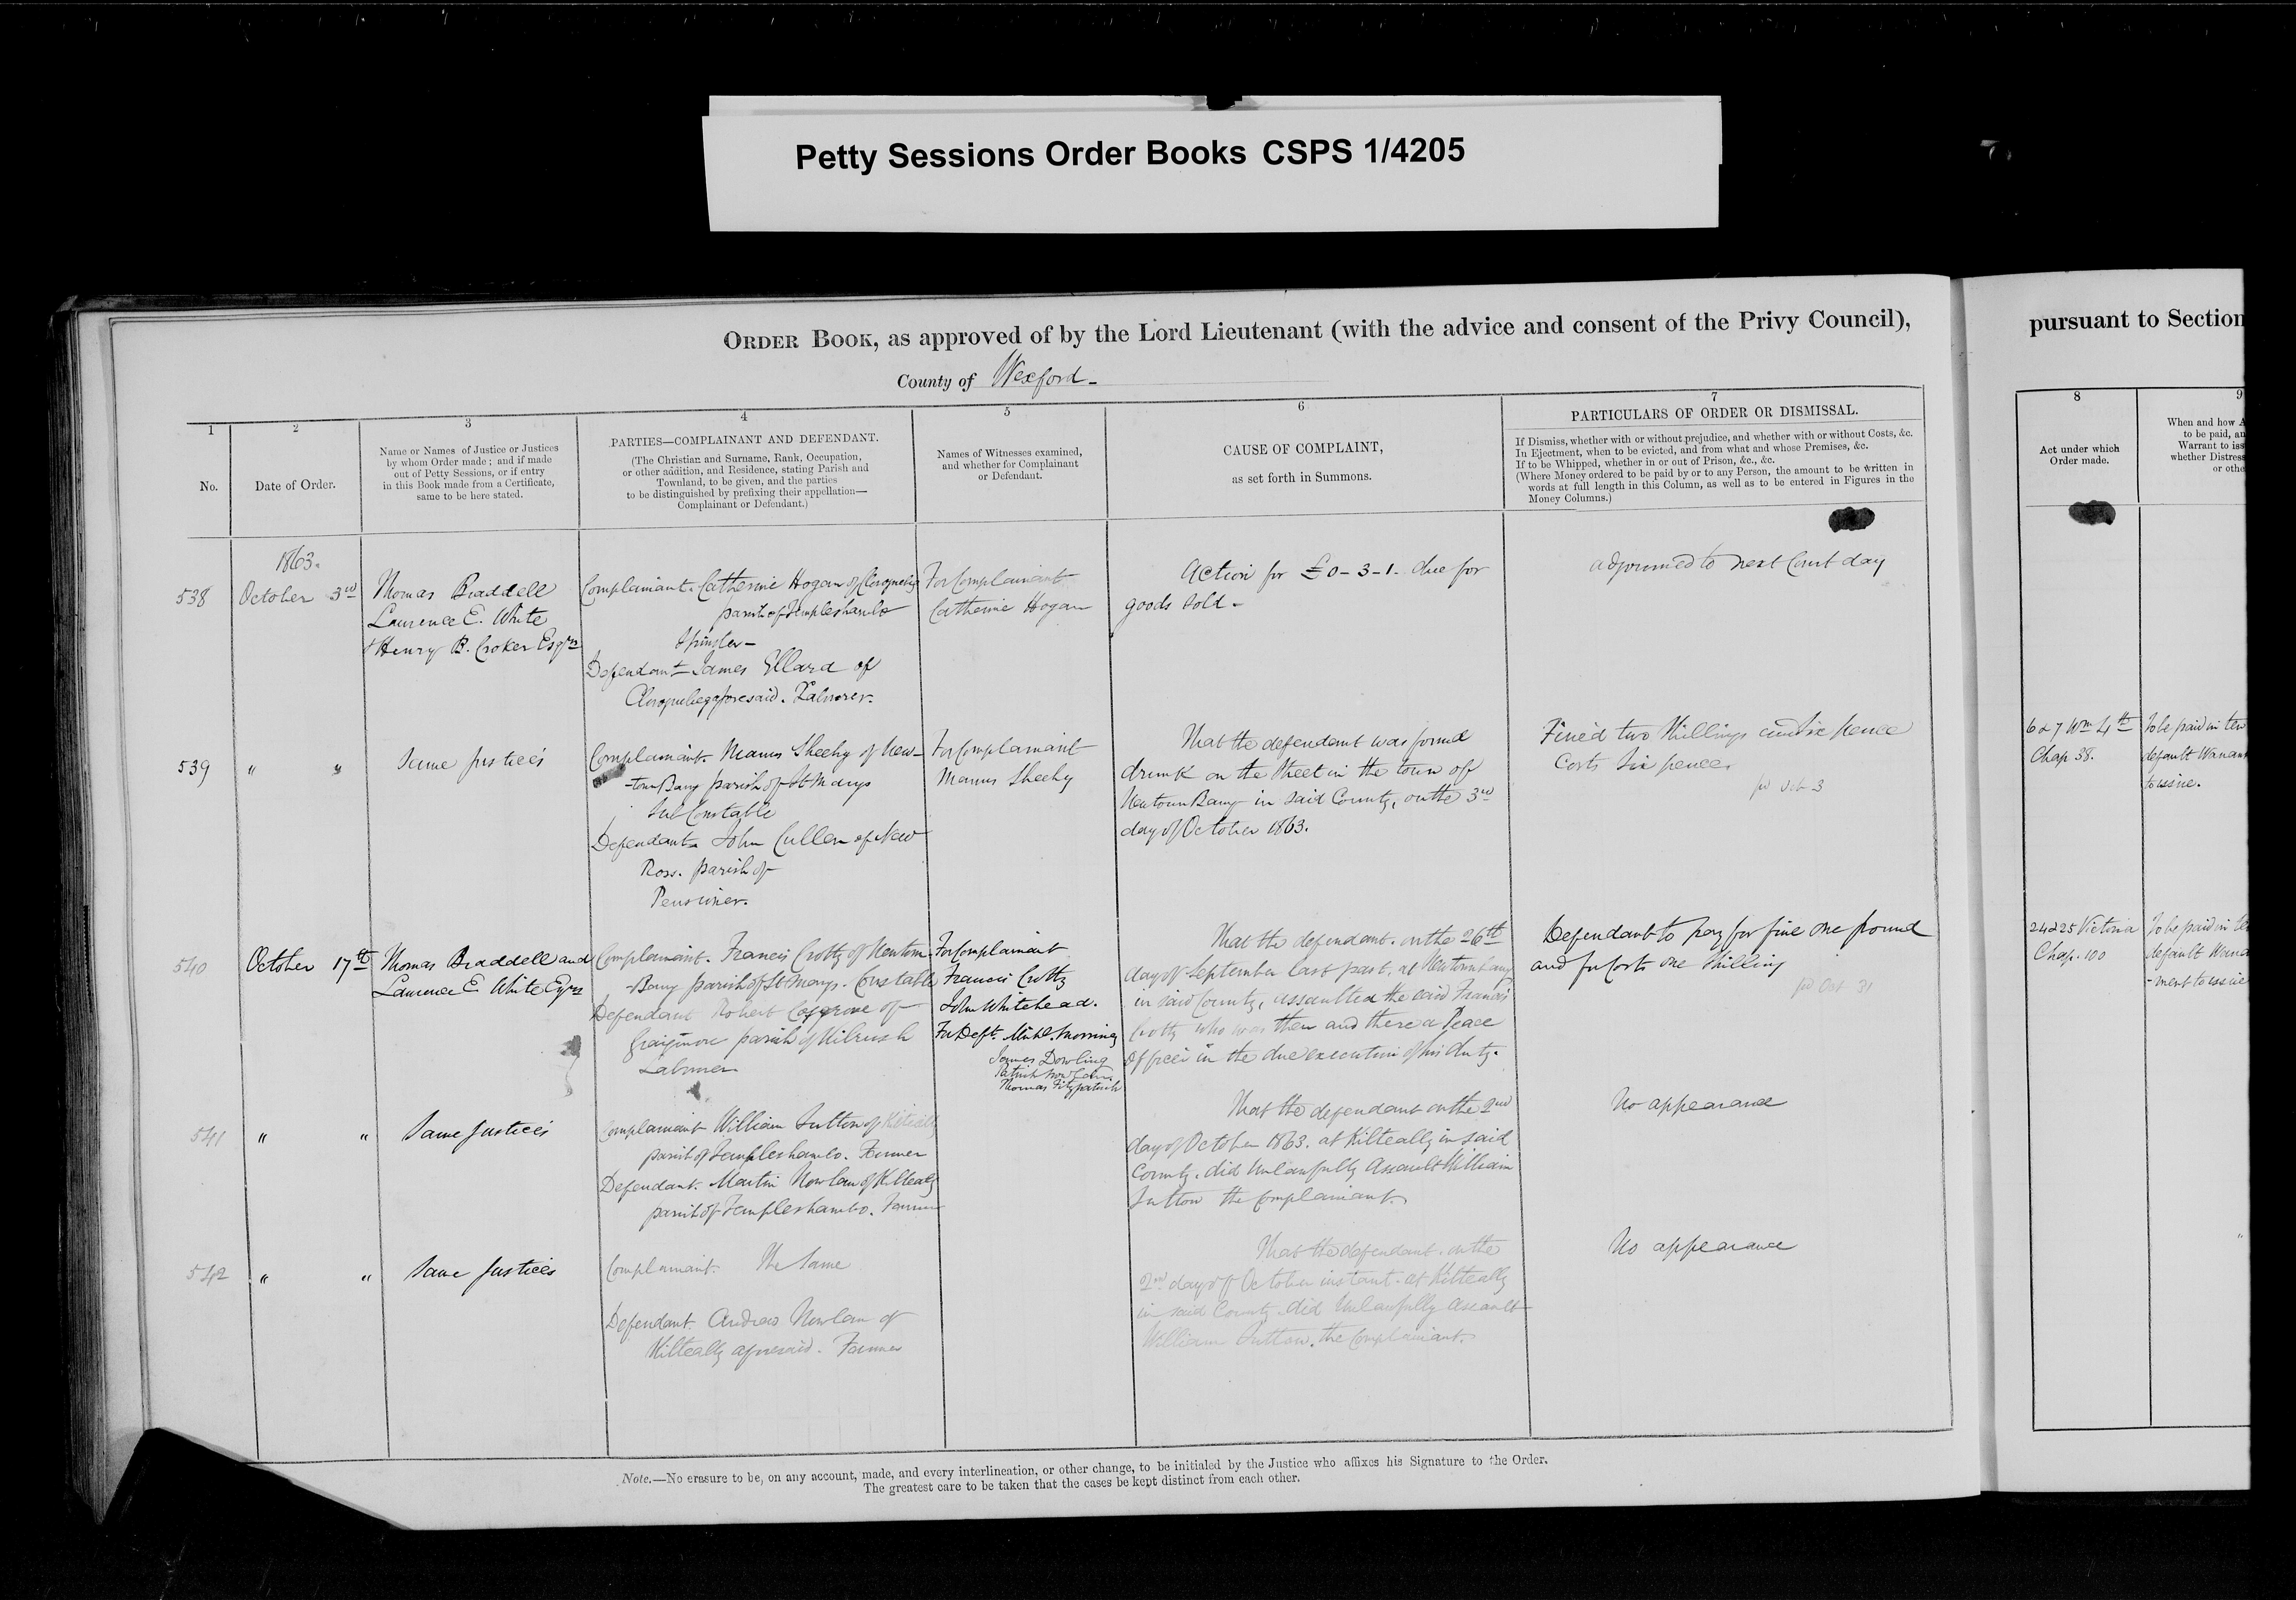 Petty Sessions Order Books CSPS 1/4205
ORDER BOOK, as approved of by the Lord Lieutenant (with the advice and consent of the Privy Council),
pursuant to Section
County of Wexford -
1
No.
2
Date of Order.
3
Name or Names of Justice or Justices
by whom Order made; and if made
out of Petty Sessions, or if entry
in this Book made from a Certificate,
same to be here stated.
4
PARTIES—COMPLAINANT AND DEFENDANT.
(The Christian and Surname, Rank, Occupation,
or other addition, and Residence, stating Parish and
Townland, to be given, and the parties
to be distinguished by prefixing their appellation—
Complainant or Defendant.)
5
Names of Witnesses examined,
and whether for Complainant
or Defendant.
6
CAUSE OF COMPLAINT,
as set forth in Summons.
7
PARTICULARS OF ORDER OR DISMISSAL.
If Dismiss, whether with or without prejudice, and whether with or without Costs, &c.
In Ejectment, when to be evicted, and from what and whose Premises, &c.
If to be Whipped, whether in or out of Prison, &c., &c.
(Where Money ordered to be paid by or to any Person, the amount to be written in
words at full length in this Column, as well as to be entered in Figures in the
Money Columns.)
8
Act under which
Order made.
9
When and how A
to be paid, an
Warrant to iss
whether Distress
or othe
1863.
538
October 3rd
Thomas Braddell
Laurence E. White
& Henry B. Croker Esqrs
Complainant. Catherine Hogan of
parish of Templeshambo
Spinster -
Defendant James Ellard of
aforesaid. Labourer.
For Complainant
Catherine Hogan
Action for £0-3-1. due for
goods sold -
adjourned to next Court day
539
" "
Same Justices
Complainant. Manus Sheehy of New-
-townBarry parish of St Marys
Sub Constable
Defendant John Cullen of New
Ross. parish of
Pensioner.
For Complainant
Manus Sheehy
That the defendant was found
drunk on the Street in the town of
NewtownBarry in said County, on the 3rd
day of October 1863.
Fined two Shillings and six pence
Costs Six pence.
pd Oct 3
6 & 7 Wm 4th
Chap 38.
To be paid in ten
default Warrant
to issue.
540
October 17th
Thomas Braddell and
Laurence E White Esqrs
Complainant. Francis Crotty of Newtown-
-Barry parish of St Marys. Constable
Defendant Robert Cosgrove of
Graigmore parish of Kilrush
Labourer
For Complainant
Francis Crotty
John Whitehead.
For Deft. Michl. Morrissey
James Dowling
Patrick Nowlan
Thomas Fitzpatrick
That the defendant. on the 26th
day of September last past, at Newtownbarry
in said County, assaulted the said Francis
Crotty who was then and there a Peace
Officer in the due execution of his duty.
Defendant to pay for fine one pound
and for Costs one Shilling
pd Oct 31
24 & 25 Victoria
Chap. 100
To be paid in
default Warra
-ment to issue
541
" "
Same Justices
Complainant William Sutton of Kilteally
parish of Templeshambo. Farmer
Defendant. Martin Nowlan of Kilteally
parish of Templeshambo. Farmer
That the defendant on the 2nd
day of October 1863. at Kilteally in said
County. did Unlawfully Assault William
Sutton the Complainant.
No appearance
542
" "
Same Justices
Complainant. The Same
Defendant. Andrew Nowlan of
Kilteally aforesaid. Farmer
That the defendant. on the
2nd day of October instant. at Kilteally
in said County. did Unlawfully Assault
William Sutton. the Complainant.
No appearance
Note.—No erasure to be, on any account, made, and every interlineation, or other change, to be initialed by the Justice who affixes his Signature to the Order.
The greatest care to be taken that the cases be kept distinct from each other.